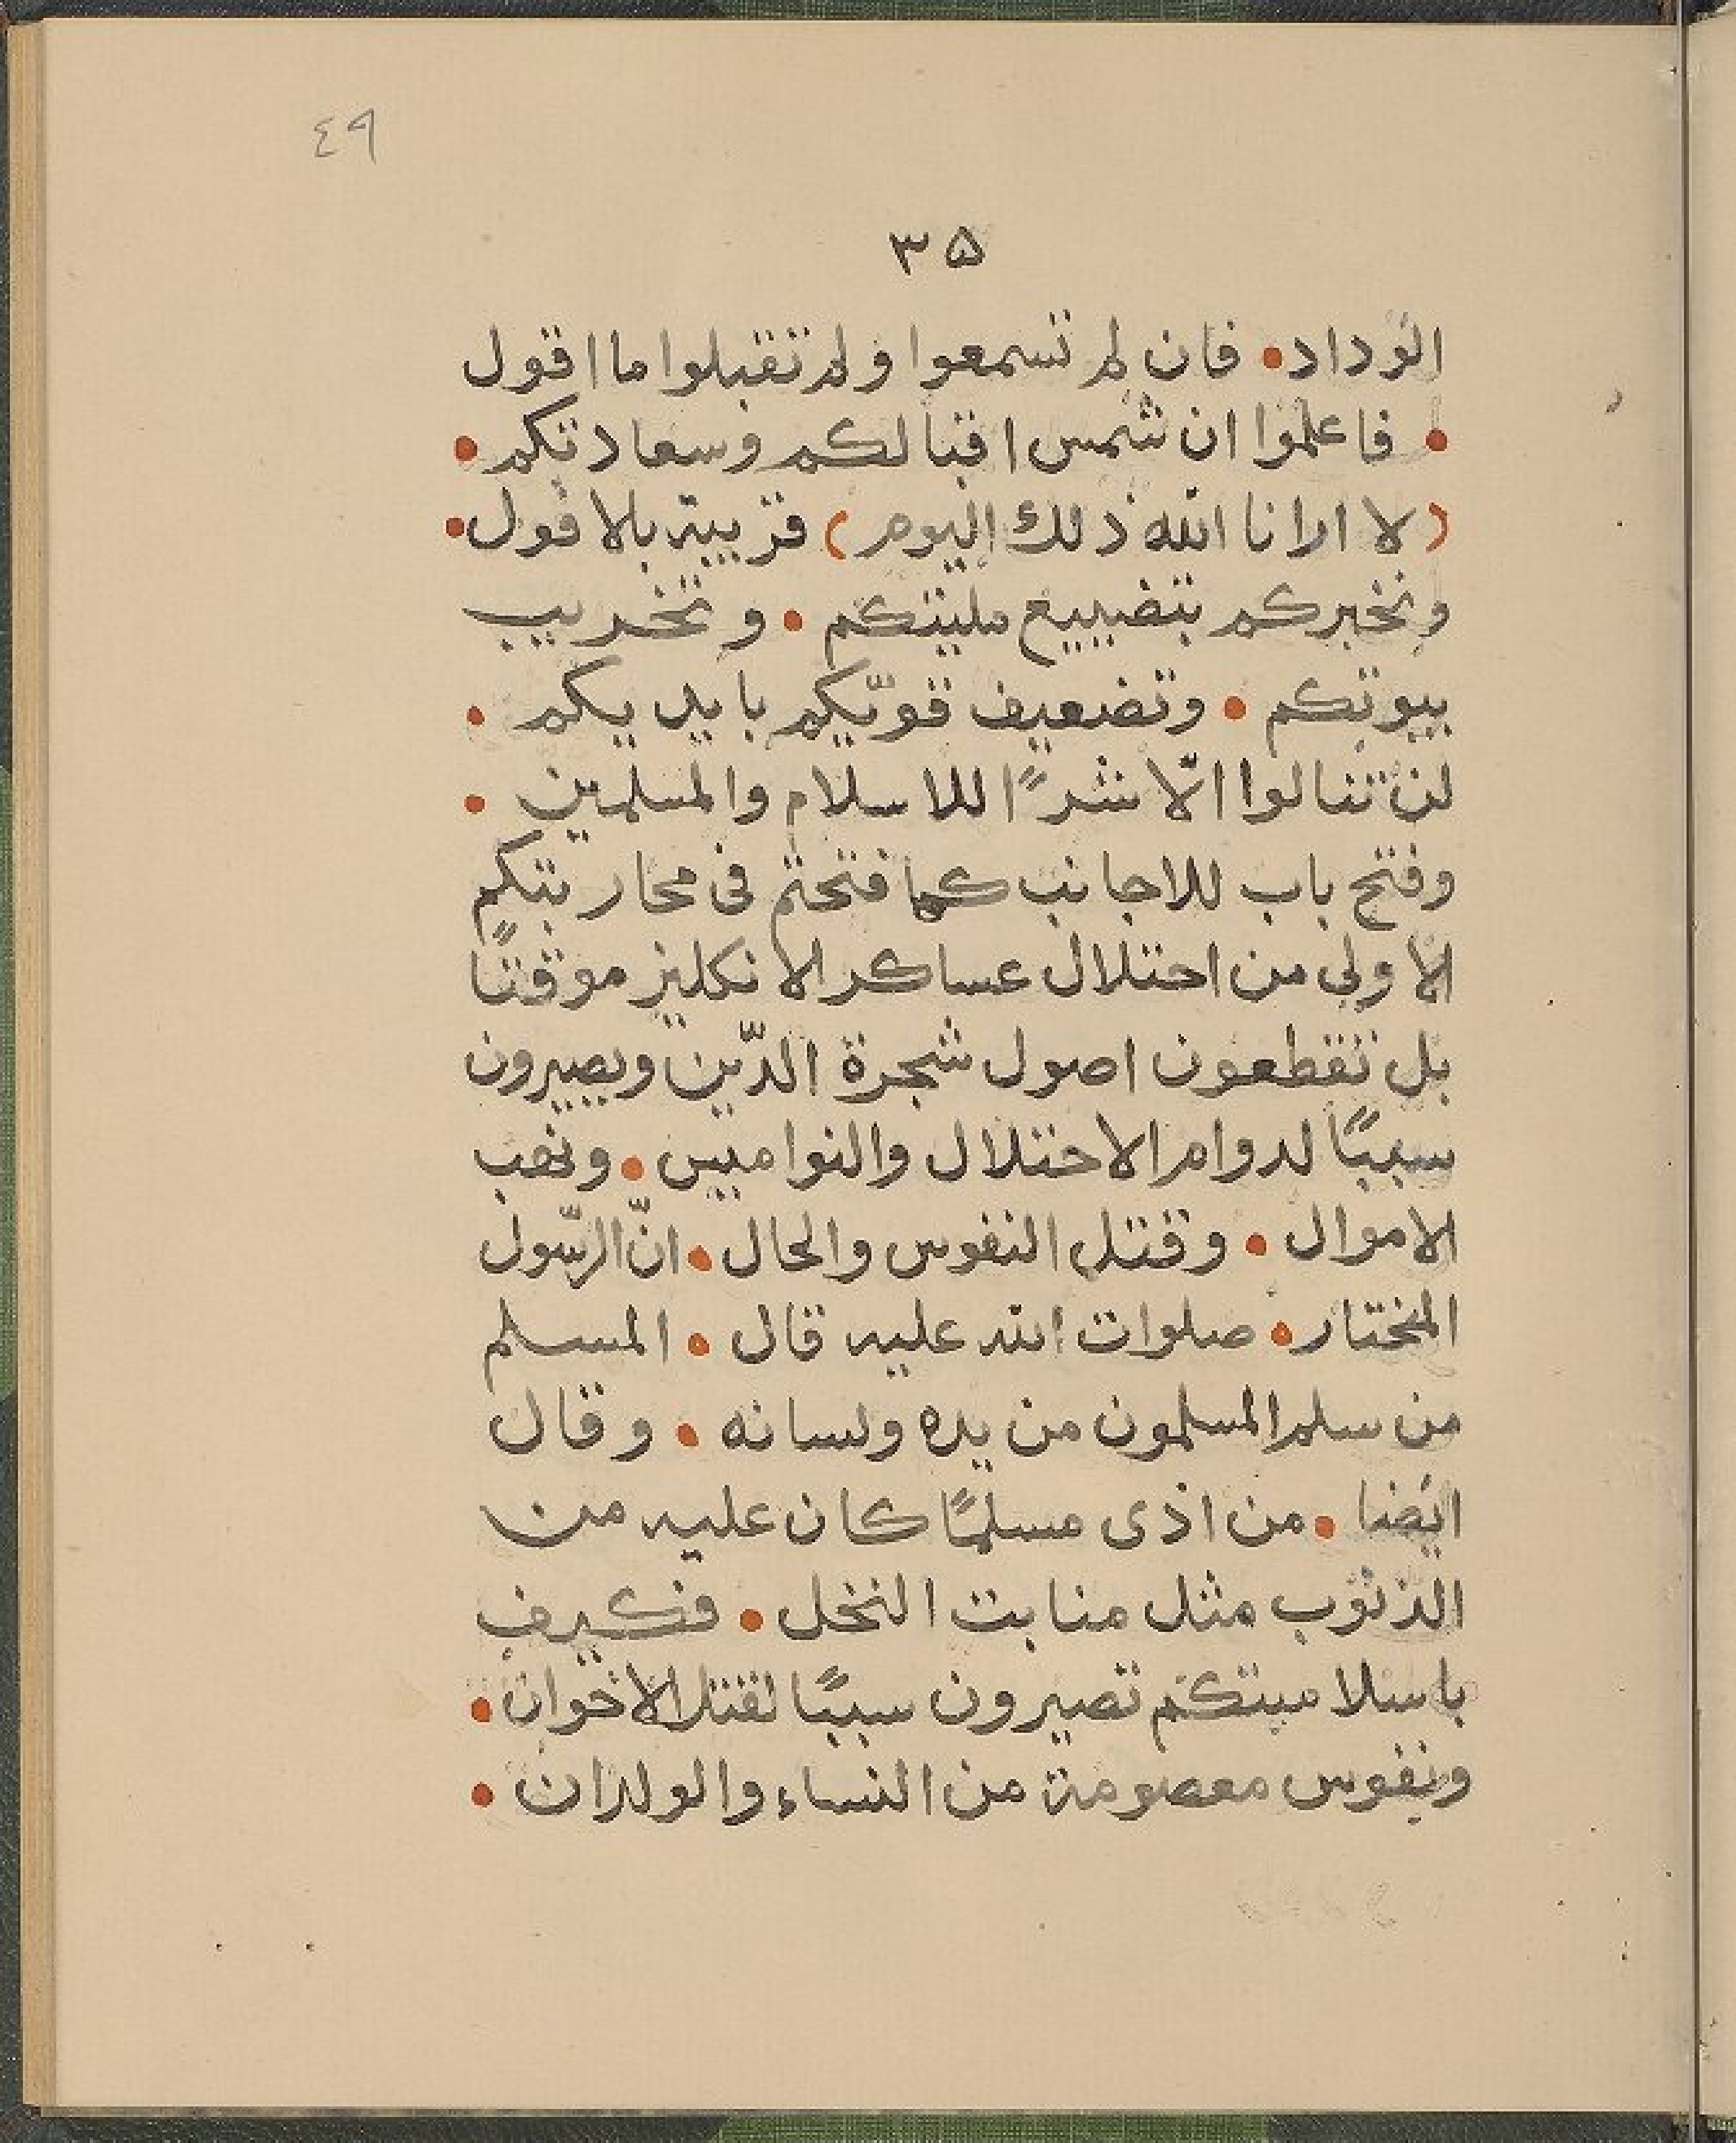 ٤٩
٣٥
الوداد • فان لم تسمعوا ولم تقبلوا ما اقول
• فاعلموا ان شمس اقبالكم وسعادتكم •
(لا ارانا الله ذلك اليوم) قريبة بالافول •
ونخبركم بتضييع مليتكم • وتخريب
بيوتكم • وتضعيف قوّيكم بايديكم •
لن تنالوا الّا شرًا للاسلام والمسلمين •
وفتح باب للاجانب كما فتحتم فى محاربتكم
الاولي من احتلال عساكر الانكليز موقتًا
بل تقطعون اصول شجرة الدّين ويصيرون
سببًا لدوام الاحتلال والنواميس • ونهب
الاموال • وقتل النفوس والحال • انّ الرّسول
المختار • صلوات الله عليه قال • المسلم
من سلم المسلمون من يده ولسانه • وقال
ايضا • من اذى مسلمًا كان عليه من
الذنوب مثل منابت النخل • فكيف
باسلاميتكم تصيرون سببًا لقتل الاخوان •
ونفوس معصومة من النساء والولدان •